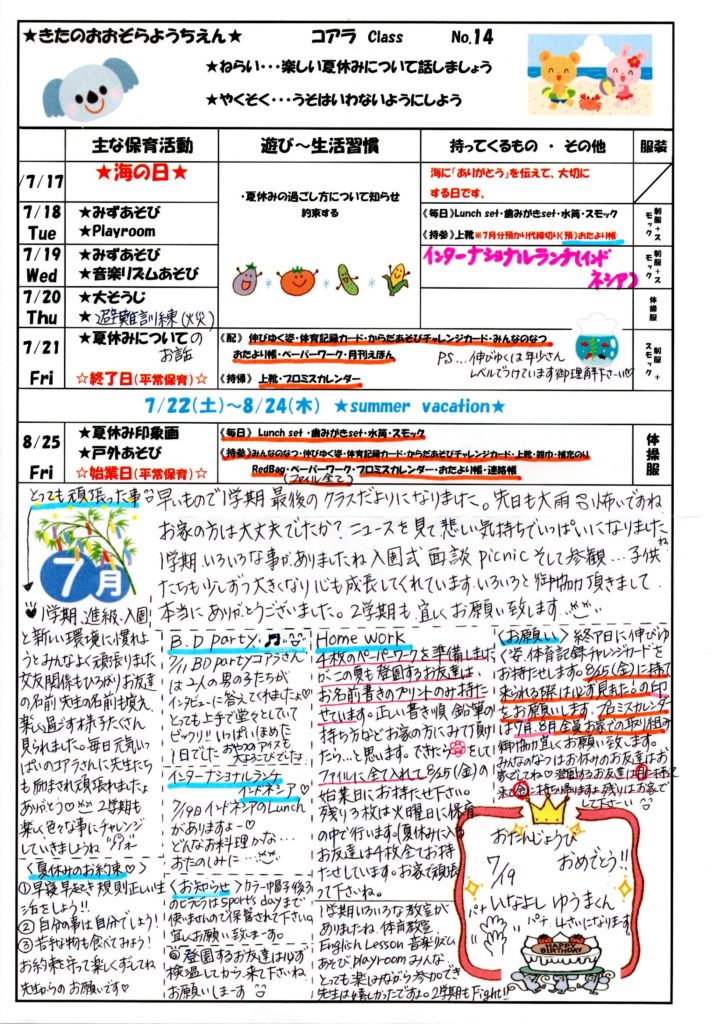 ★きたのおおぞらようちえん★
コアラ Class No.14
★ねらい・・・楽しい夏休みについて話しましょう
★やくそく・・・うそはいわないようにしよう
主な保育活動
遊び～生活習慣
持ってくるもの ・ その他
服装
7/17
★海の日★
・夏休みの過ごし方について知らせ
約束する
海に「ありがとう」を伝えて、大切に
する日です。
7/18
Tue
★みずあそび
★Playroom
《毎日》Lunch set・歯みがきset・水筒・スモック
《持参》上靴※7月分預かり代締切り《預》おたより帳
制服+スモック
7/19
Wed
★みずあそび
★音楽リズムあそび
インターナショナルランチ(インド
ネシア)
制服+スモック
7/20
Thu
★大そうじ
★避難訓練(火災)
体操服
7/21
Fri
★夏休みについての
お話
☆終了日(平常保育)☆
《配》 伸びゆく姿・体育記録カード・からだあそびチャレンジカード・みんなのなつ
おたより帳・ペーパーワーク・月刊えほん
PS...伸びゆくは年少さん
レベルでつけています御理解下さーい♡
《持帰》 上靴・プロミスカレンダー
制服+スモック
7/22(土)～8/24(木) ★summer vacation★
8/25
Fri
★夏休み印象画
★戸外あそび
☆始業日(平常保育)☆
《毎日》 Lunch set・歯みがきset・水筒・スモック
《持参》みんなのなつ・伸びゆく姿・体育記録カード・からだあそびチャレンジカード・上靴・雑巾・補充のり
RedBag・ペーパーワーク・プロミスカレンダー・おたより帳・連絡帳
(ファイル全て)
体操服
とっても頑張った事
7月
早いもので1学期最後のクラスだよりになりました。先日も大雨 怖いですね
お家の方は大丈夫でしたか？ニュースを見て悲しい気持ちでいっぱいになりましたね
1学期いろいろな事がありましたね入園式 面談 picnic そして参観...子供
たちも少しずつ大きくなり心も成長してくれています。いろいろと御協力頂きまして
本当にありがとうございました。2学期も宜しくお願い致します
♥1学期、進級、入園
と新しい環境に慣れよ
うとみんなよく頑張りました
交友関係もひろがりお友達
の名前 先生の名前も覚え
楽しく過ごす様子たくさん
見られました。毎日元気いっ
ぱいのコアラさんに先生たち
も励まされ頑張れましたよ
ありがとう♡ 2学期も
楽しく色々な事にチャレンジ
していきましょうね
〈夏休みのお約束♡〉
①早寝早起き規則正しい生
活をしよう!!
②自分の事は自分でしよう!
③苦手な物も食べてみよう!
お約束を守って楽しくすごしてね
先生からのお願いです♡
B.D party
7/11 BDpartyコアラさん
は2人の男の子たちが
インタビューに答えてくれましたよ♡
とっても上手で堂々としていて
ビックリ!! いっぱいほめた
1日でした おやつのアイスも
大よろこびでした
インターナショナルランチ
インドネシア♡
7/19日インドネシアのLunch
がありますよー♡
どんなお料理かな...
おたのしみに...
〈お知らせ〉カラー帽子後ろ
のヒラヒラはsports dayまで
使いませんので保管されて下さい。
宜しくお願い致しまーす。
◎登園するお友達は必ず
検温してから来て下さいね
お願いしまーす
Home work
4枚のペーパーワークを準備しました
がこの夏も登園するお友達は、
お名前書きのプリントのみ持た
せています。正しい書き順 鉛筆の
持ち方などお家の方にみて頂け
たら...と思います。できたら をして
ファイルに全て入れて8/25(金)の
始業日にお持たせ下さい。
残り3枚は火曜日に保育
の中で行います。(夏休みに入る
お友達は4枚全てお持
たせしています。お家で頑張
って下さいね。
1学期いろいろな教室が
ありましたね 体育教室
English Lesson 音楽リズム
あそび playroom みんな
とっても楽しみながら参加でき
先生は嬉しかったですよ。2学期もFight!!
〈お願い〉終了日に伸びゆ
く姿、体育記録、チャレンジカードを
お持たせします。8/25(金)に持って
来られる際は必ず見ました。の印
をお願いします。プロミスカレンダー
は7月、8月全員お家での取り組み
御協力宜しくお願い致します。
みんなのなつはお休みのお友達はお
家でしてね◎登園するお友達は月に持って
来て金に持ち帰りますよ残りはお家で
して下さーい
おたんじょうび
おめでとう!!
7/19
いなよし ゆうまくん
4さいになります
パチ
パチ
HAPPY
BIRTHDAY